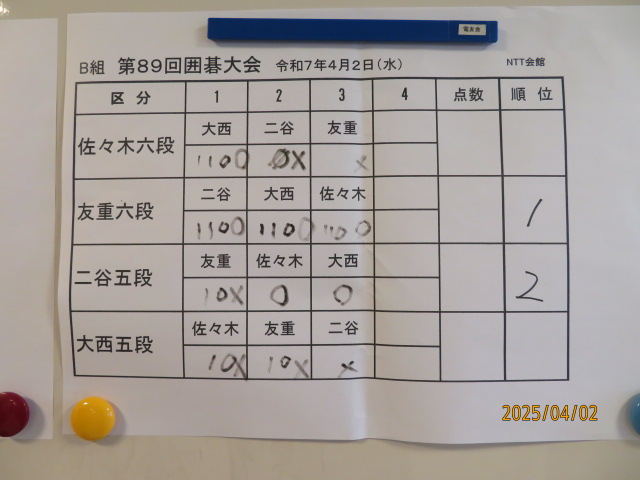 電友会
B組 第89回囲碁大会 令和7年4月2日(水) NTT会館
区 分 1 2 3 4 点数 順 位
佐々木六段 大西 二谷 友重
1100 0X x
友重六段 二谷 大西 佐々木 1
1100 1100 1100
二谷五段 友重 佐々木 大西 2
10X 0 0
大西五段 佐々木 友重 二谷
10X 10X x
2025/04/02